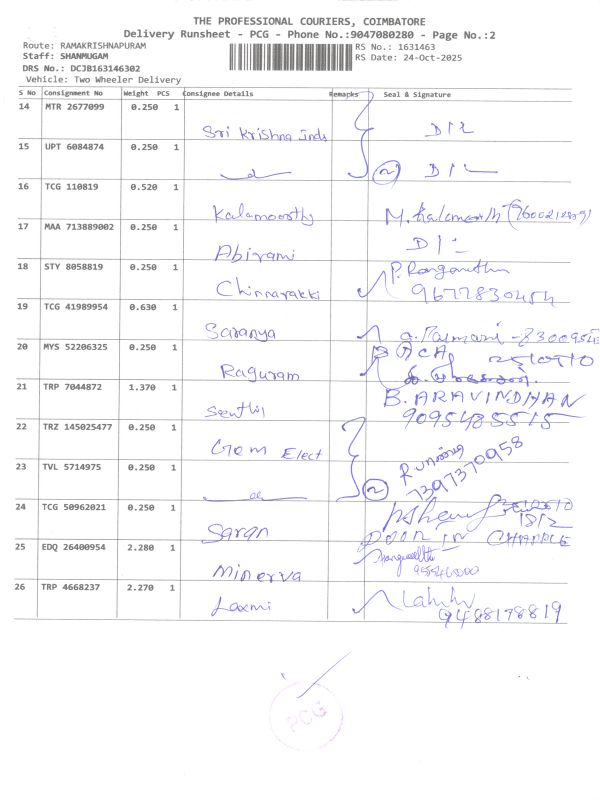 THE PROFESSIONAL COURIERS, COIMBATORE
Delivery Runsheet - PCG - Phone No.:9047080280 - Page No.:2
Route: RAMAKRISHNAPURAM
RS No.: 1631463
Staff: SHANMUGAM
RS Date: 24-Oct-2025
DRS No.: DCJB163146302
Vehicle: Two Wheeler Delivery
S No Consignment No Weight PCS Consignee Details Remarks Seal & Signature
14 MTR 2677099 0.250 1
Sri Krishna Inds
15 UPT 6084874 0.250 1
2
16 TCG 110819 0.520 1
Kalamoorthy
17 MAA 713889002 0.250 1
Abirami
18 STY 8058819 0.250 1
Chinnarakki 9677830454
19 TCG 41989954 0.630 1
Saranya
20 MYS 52206325 0.250 1
Raguram
21 TRP 7044872 1.370 1 B. ARAVINDHAN
Senthil 9095485515
22 TRZ 145025477 0.250 1
Gem Elect Running
7397370958
23 TVL 5714975 0.250 1
2
24 TCG 50962021 0.250 1
Saran
25 EDQ 26400954 2.280 1
Minerva
26 TRP 4668237 2.270 1
Laxmi 9488178819
PCG